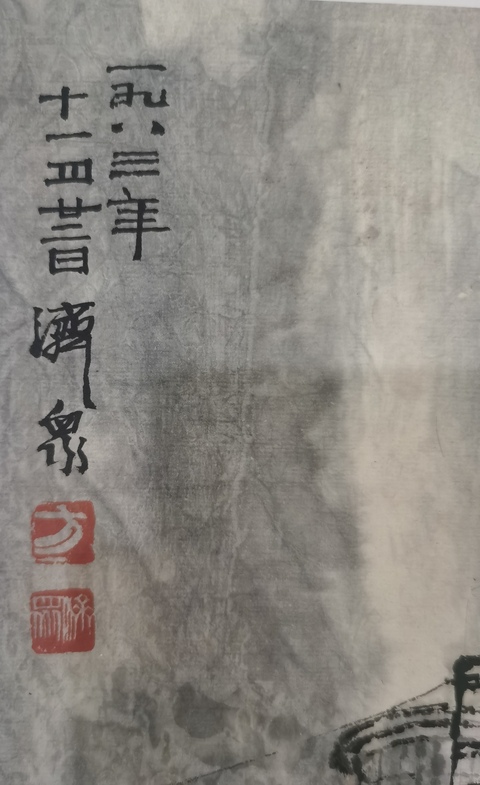 一九八三年
十一月廿二日
濟衆
方